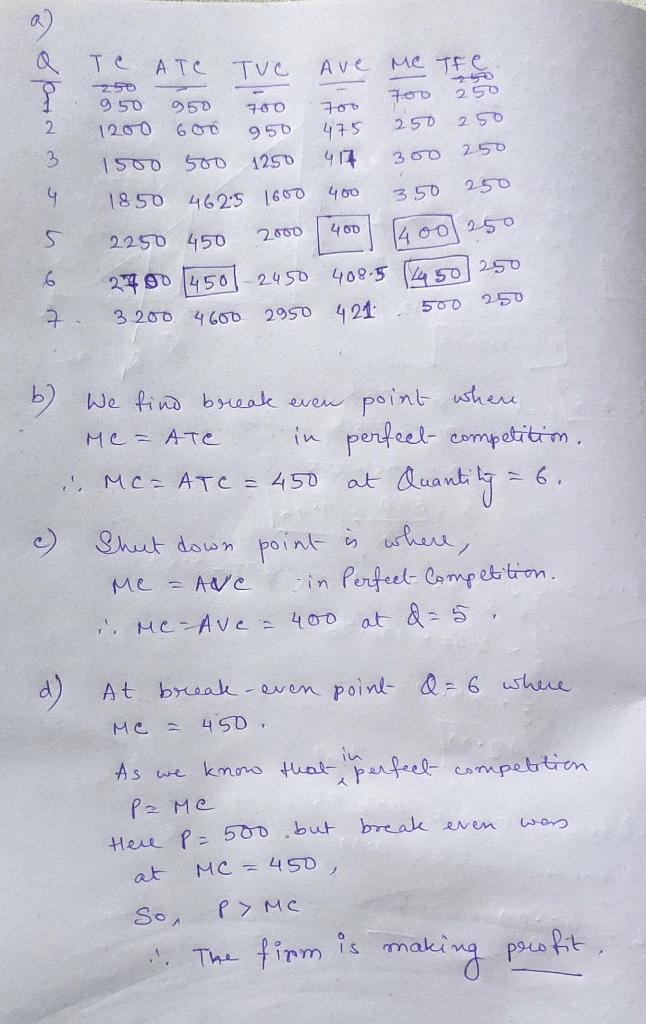 a)
Q TC ATC TVC AVC MC TFC
250 - - - - 250
1 950 950 700 700 700 250
2 1200 600 950 475 250 250
3 1500 500 1250 417 300 250
4 1850 462.5 1600 400 350 250
5 2250 450 2000 400 400 250
6 2700 450 2450 408.5 450 250
7. 3200 4600 2950 421. 500 250
b) We find break even point where
MC = ATC in perfect competition.
∴ MC = ATC = 450 at Quantity = 6.
c) Shut down point is where,
MC = AVC in Perfect Competition.
∴ MC = AVC = 400 at Q = 5.
d) At break-even point Q = 6 where
MC = 450.
As we know that in perfect competition
P = MC
Here P = 500 but break even was
at MC = 450,
So, P > MC
∴ The firm is making profit.